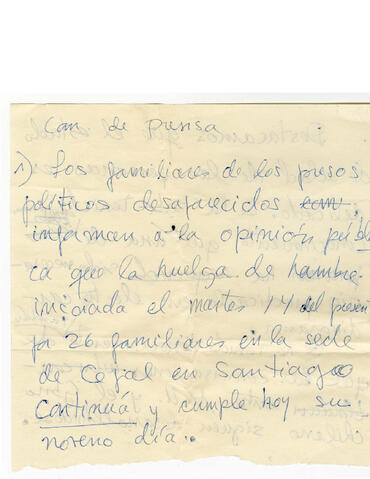 Com de prensa
1) Los familiares de los presos
políticos desaparecidos com.
informan a la opinión públi
ca que la huelga de hambre
iniciada el martes 14 del presen
por 26 familiares en la sede
de Cepal en Santiago
continúa y cumple hoy su
noveno día..